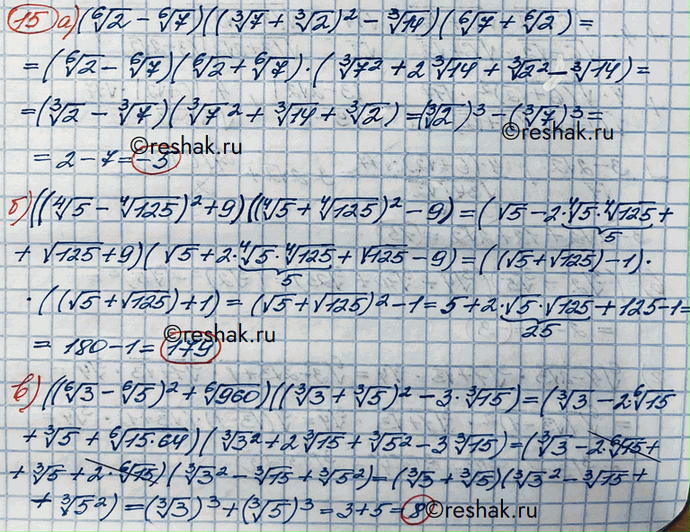 15 а) (⁶√2 − ⁶√7)((³√7 + ³√2)² − ³√14)(⁶√7 + ⁶√2) =
= (⁶√2 − ⁶√7)(⁶√2 + ⁶√7)·(³√7² + 2³√14 + ³√2² − ³√14) =
= (³√2 − ³√7)(³√7² + ³√14 + ³√2) = (³√2)³ − (³√7)³ =
©reshak.ru
= 2 − 7 = −5
©reshak.ru
б) ((⁴√5 − ⁴√125)² + 9)((⁴√5 + ⁴√125)² − 9) = (√5 − 2·⁴√5·⁴√125 +
5
+ √125 + 9)(√5 + 2·⁴√5·⁴√125 + √125 − 9) = ((√5 + √125) − 1)·
5
· ((√5 + √125) + 1) = (√5 + √125)² − 1 = 5 + 2·√5·√125 + 125 − 1 =
25
©reshak.ru
= 180 − 1 = 179
в) ((⁶√3 − ⁶√5)² + ⁶√960)((³√3 + ³√5)² − 3·³√15) = (³√3 − 2⁶√15
+ ³√5 + ⁶√15·64)(³√3² + 2³√15 + ³√5² − 3³√15) = (³√3 − 2·⁶√15 +
+ ³√5 + 2·⁶√15)(³√3² − ³√15 + ³√5²) = (³√3 + ³√5)(³√3² − ³√15 +
+ ³√5²) = (³√3)³ + (³√5)³ = 3 + 5 = 8
©reshak.ru